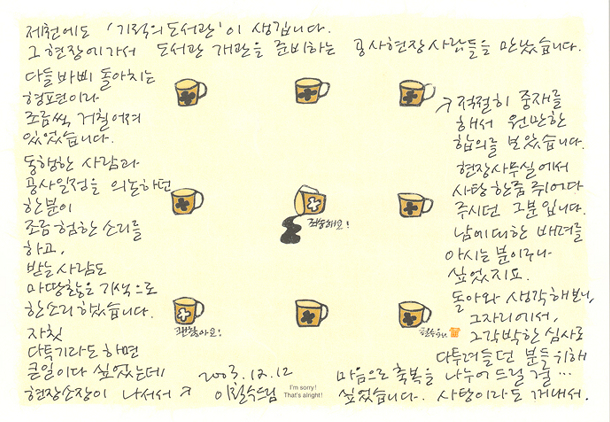 제천에도 '기적의 도서관'이 생깁니다.
그 현장에 가서 도서관 개관을 준비하는 공사현장 사람들을 만났습니다.
다들 바삐 돌아치는
형편이라
조금씩 거칠어져
있었습니다.
동행한 사람과
공사일정을 의논하던
한분이
조금 험한 소리를
하고,
받는 사람도
마땅찮은 기색으로
한소리 했습니다.
자칫
다투기라도 하면
큰일이다 싶었는데
현장소장이 나서서
적절히 중재를
해서 원만한
합의를 보았습니다.
현장사무실에서
사탕 한줌 쥐어다
주시던 그분입니다.
남에 대한 배려를
아시는 분이구나
싶었지요.
돌아와 생각해보니,
그자리에서,
그 각박한 심사로
다투려들던 분들 위해
마음으로 축복을 나누어 드릴 걸…
싶었습니다. 사탕이라도 꺼내서.
죄송해요!
괜찮아요!
2003.12.12
이철수드림
I'm sorry!
That's alright!